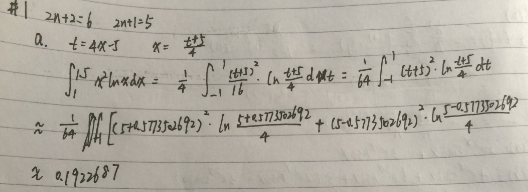 #1 2n+2=6 2n+1=5
a. t=4x-5 x= \frac{t+5}{4}
\int_{1}^{1.5} x^2 ln x dx = \frac{1}{4} \int_{-1}^{1} \frac{(t+5)^2}{16} \cdot ln \frac{t+5}{4} dt = \frac{1}{64} \int_{-1}^{1} (t+5)^2 \cdot ln \frac{t+5}{4} dt
≈ \frac{1}{64} [(5+0.5773502692)^2 \cdot ln \frac{5+0.5773502692}{4} + (5-0.5773502692)^2 \cdot ln \frac{5-0.5773502692}{4}
≈ 0.1922687